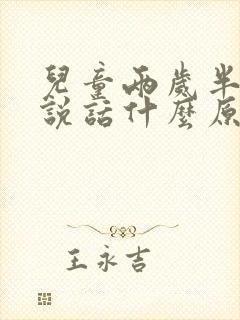 兒童兩歲半
說話什麼原
王永吉